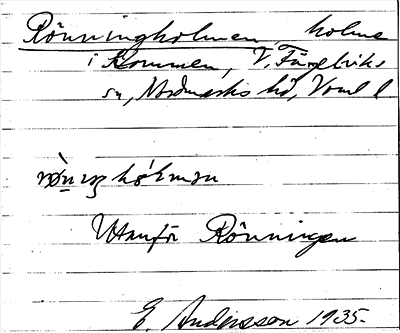 Rönningholmen, holme
i Kommen, V. Fågelviks
sn, Nordmarks hd, Vrml l
hólmən
Utanför Rönningen
E. Andersson 1935.